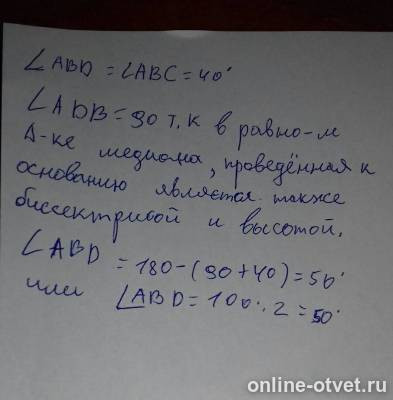 ∠ABD = ∠ABC = 40°
∠ADB = 90 т.к в равно-м
Δ-ке медиана, проведённая к
основанию является также
биссектрисой и высотой.
∠ABD = 180-(90+40)=50°
или ∠ABD = 100:2=50°
online-otvet.ru